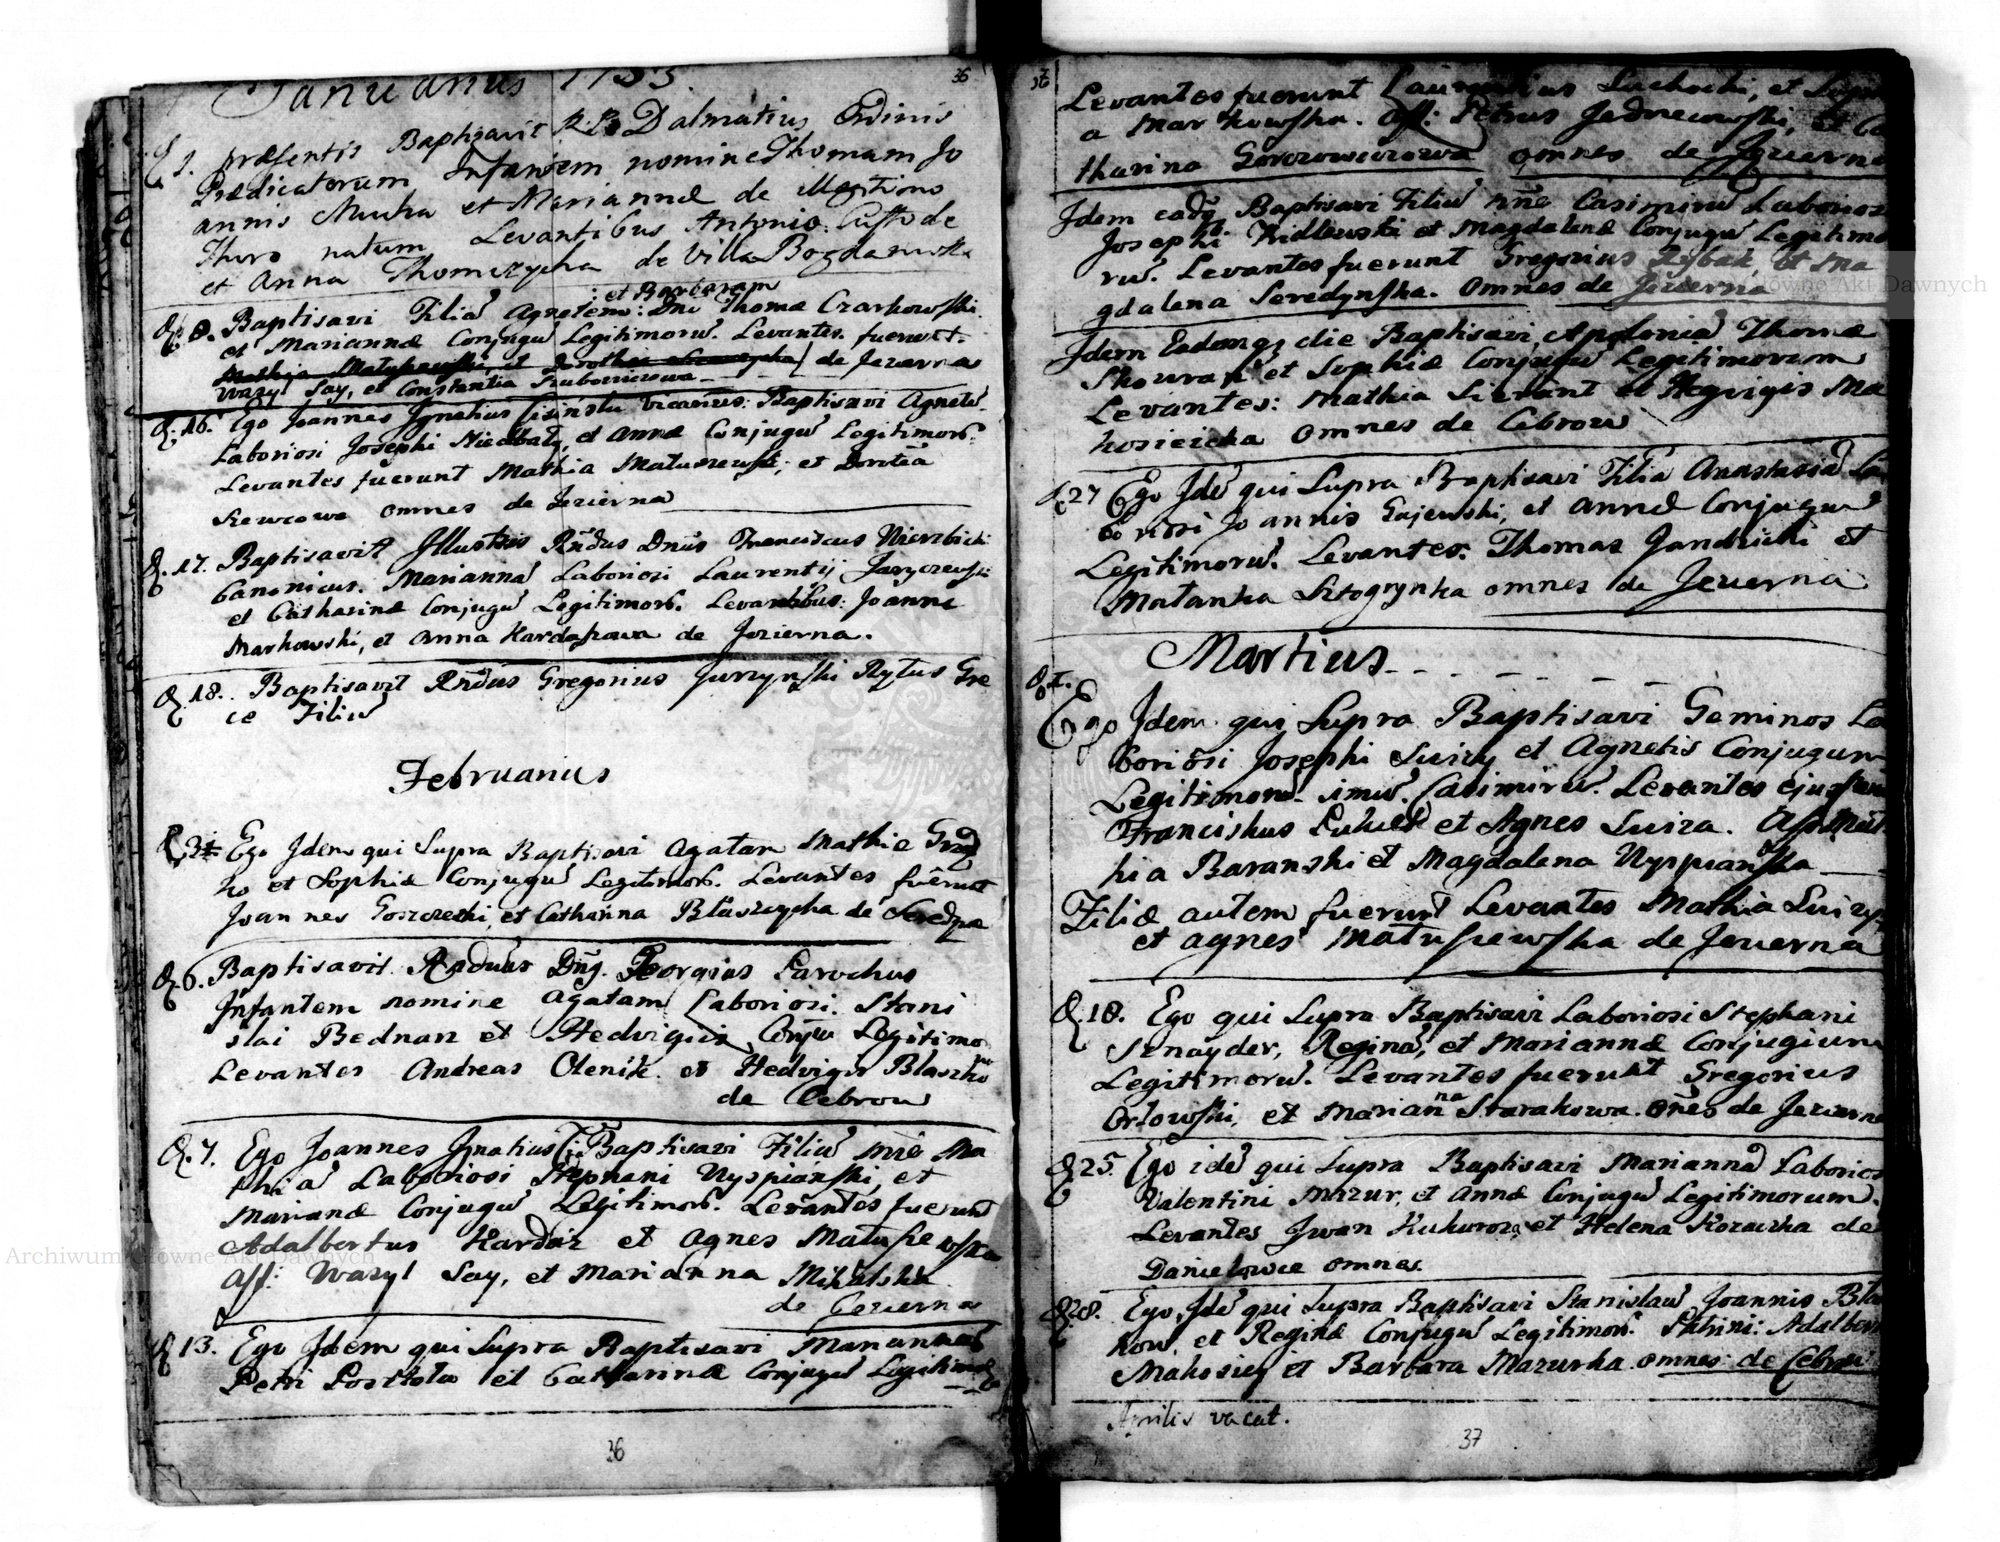 Januarius 1753
36
D. 1. præsentis Baptisavit R. P. Dalmatius Ordinis
Prædicatorum Infantem nomine Thomam Jo
annis Mucha et Mariannæ de Martino
Thuro natum Levantibus Antonio Custode
et Anna Thomczycha de Villa Bogdanowka
: et Barbaram
D. 8. Baptisavi Filiã Agnetem: Dni Thomæ Czarkowski
et Mariannæ Conjugũ Legitimorũ. Levantes fuerunt.
Mathia Matyszewski, et Dorothea de Jezierna
Wazyl Say, et Constantia Szuborniczowa
D. 16. Ego Joannes Ignatius Cisinski Vicarius: Baptisavi Agnetẽ
Laboriosi Josephi Niedbały, et Annæ Conjugũ Legitimor.
Levantes fuerunt Mathia Matuszewski, et Dorotea
Szewcowa omnes de Jezierna
D. 17. Baptisavit Illustris Rñdus Dnus Franciscus Wierzbicki
Canonicus. Mariannã Laboriosi Laurentij Jaryczewski
et Catharinæ Conjugũ Legitimor. Levantibus: Joanne
Markowski, et Anna Kardaszowa de Jezierna.
D. 18. Baptisavit Rñdus Gregorius Jurzynski Rytus Græ
ce Filiũ
Februarius
D. 3. Ego Idem qui Supra Baptisavi Agatam Mathiæ
ko et Sophiæ Conjugũ Legitimor. Levantes fuerunt
Joannes Goszczecki, et Catharina Błaszczycha de Seredza
D. 6. Baptisavit Rñdus Dnus Georgius Parochus
Infantem nomine Agatam Laboriosi. Stani
slai Bednarz et Hedvigis Conju Legitimo
Levantes Andreas Olenik et Hedvigis Blaszko
de Cebrow
D. 7. Ego Joannes Ignatius Ci: Baptisavi Filiũ nnẽ Ma
thiã Laboriosi Stephani Wyspianski, et
Marianæ Conjugũ Legitimor. Levantes fuerunt
Adalbertus Kardasz et Agnes Matuszewska
Ass: Wazyl Say, et Marianna Mikalska
de Jezierna
D. 13. Ego Idem qui Supra Baptisavi Mariannam
Petri Postoła et Catharinæ Conjugũ Legitimor
36
37
Levantes fuerunt Laurentius Suchocki, et Sophi
a Markowska. Ass: Petrus Jedrzeiowski, et Ca
tharina Gorczowiczowa omnes de Jezierna
Idem eadẽ Baptisavi Filiũ nñe Casimirũ Laborios
Josephi Widlowski et Magdalenæ Conjugũ Legitimo
rũ. Levantes fuerunt Gregorius Rybak, et Ma
gdalena Seredynska. Omnes de Jezierna
Idem Eademq; die Baptisavi Apoloniã Thomæ
Skowran et Sophiæ Conjugũ Legitimorum
Levantes: Mathia Sierant et Hegvigis Ma
kosieicka omnes de Cebrow
D. 27 Ego Idẽ qui Supra Baptisavi Filiã Anastasiã La
boriosi Joannis Gajewski, et Annæ Conjugũ
Legitimorũ. Levantes: Thomas Jandzicki et
Matanka Sztogrynka omnes de Jezierna
Martius
D. I.
Ego Idem qui Supra Baptisavi Geminos La
boriosi Josephi Suizy et Agnetis Conjugum
Legitimorũ. simũ. Casimirũ. Levantes ejus fuer
Franciskus Lukie et Agnes Suiza. Ass. Mat
hia Baranski et Magdalena Wyspianska
Filiæ autem fuerunt Levantes Mathia Suizy
et Agnes Matuszewska de Jezierna
D. 18. Ego qui Supra Baptisavi Laboriosi Stephani
Sznayder, Reginã, et Mariannæ Conjugium
Legitimorũ. Levantes fuerunt Gregorius
Orłowski, et Marianna Starakowa. oñes de Jezierna
D. 25. Ego idẽ qui Supra Baptisavi Mariannã Laborios
Valentini Mazur, et Annæ Conjugũ Legitimorum.
Levantes Iwan Kukuroza, et Helena Kozaczka de
Danielowce omnes
D. 28. Ego Idẽ qui Supra Baptisavi Stanislaũ Joannis Bla
kow, et Reginæ Conjugũ Legitimor. Patrini: Adalber
Makosiey et Barbara Mazurka omnes de Cebrow
Aprilis vacat.
37
Archiwum Główne Akt Dawnych
Archiwum Główne Akt Dawnych